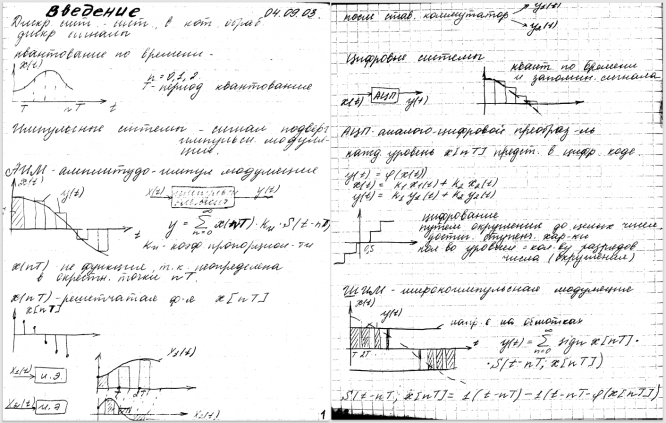 Введение 04.09.03.
Дискр сист. - сист., в кот. обраб
дискр сигналы
квантование по времени -
x(t)
n = 0,1,2
T - период квантования
T nT t
Импульсные системы - сигнал подверг
импульсн. модуля-
ции.
АИМ - амплитудо-импул модуляция
x(t) y(t)
x(t) y(t)
y = Σ x(nT)·Kи·S(t-nT)
n=0 ∞
Kи - коэф пропорцион-ти
x(nT) не функция, т.к. неопределена
в окрестн. точки nT.
x(nT) - решетчатая ф-я x[nT]
x[nT]
x1(t) и.э. x1(t)
x2(t) и.э. x2(t)
1
после став. коммутатор y1(t)
y2(t)
Цифровые системы
квант по времени
и запомин. сигнала
x(t) АЦП y(t)
t
АЦП - аналого-цифровой преобраз-ль
кажд уровень x[nT] предст. в цифр. коде
y(t) = φ(x(t))
x(t) = k1 x1(t) + k2 x2(t)
y(t) = k1 y1(t) + k2 y2(t)
цифрование
путем округления до целых чисел
достиг. ступенч. хар-ки
0,5
кол во уровней = кол. ву разрядов
числа (округления)
ШИМ - широкоимпульсная модуляция
x(t)
y(t) напр-е на обмотках
T 2T
y(t) = Σ sign x[nT]·
n=0 ∞
·S(t-nT; x[nT])
t
S(t-nT; x[nT] = 1(t-nT) - 1(t-nT-φ(x[nT])